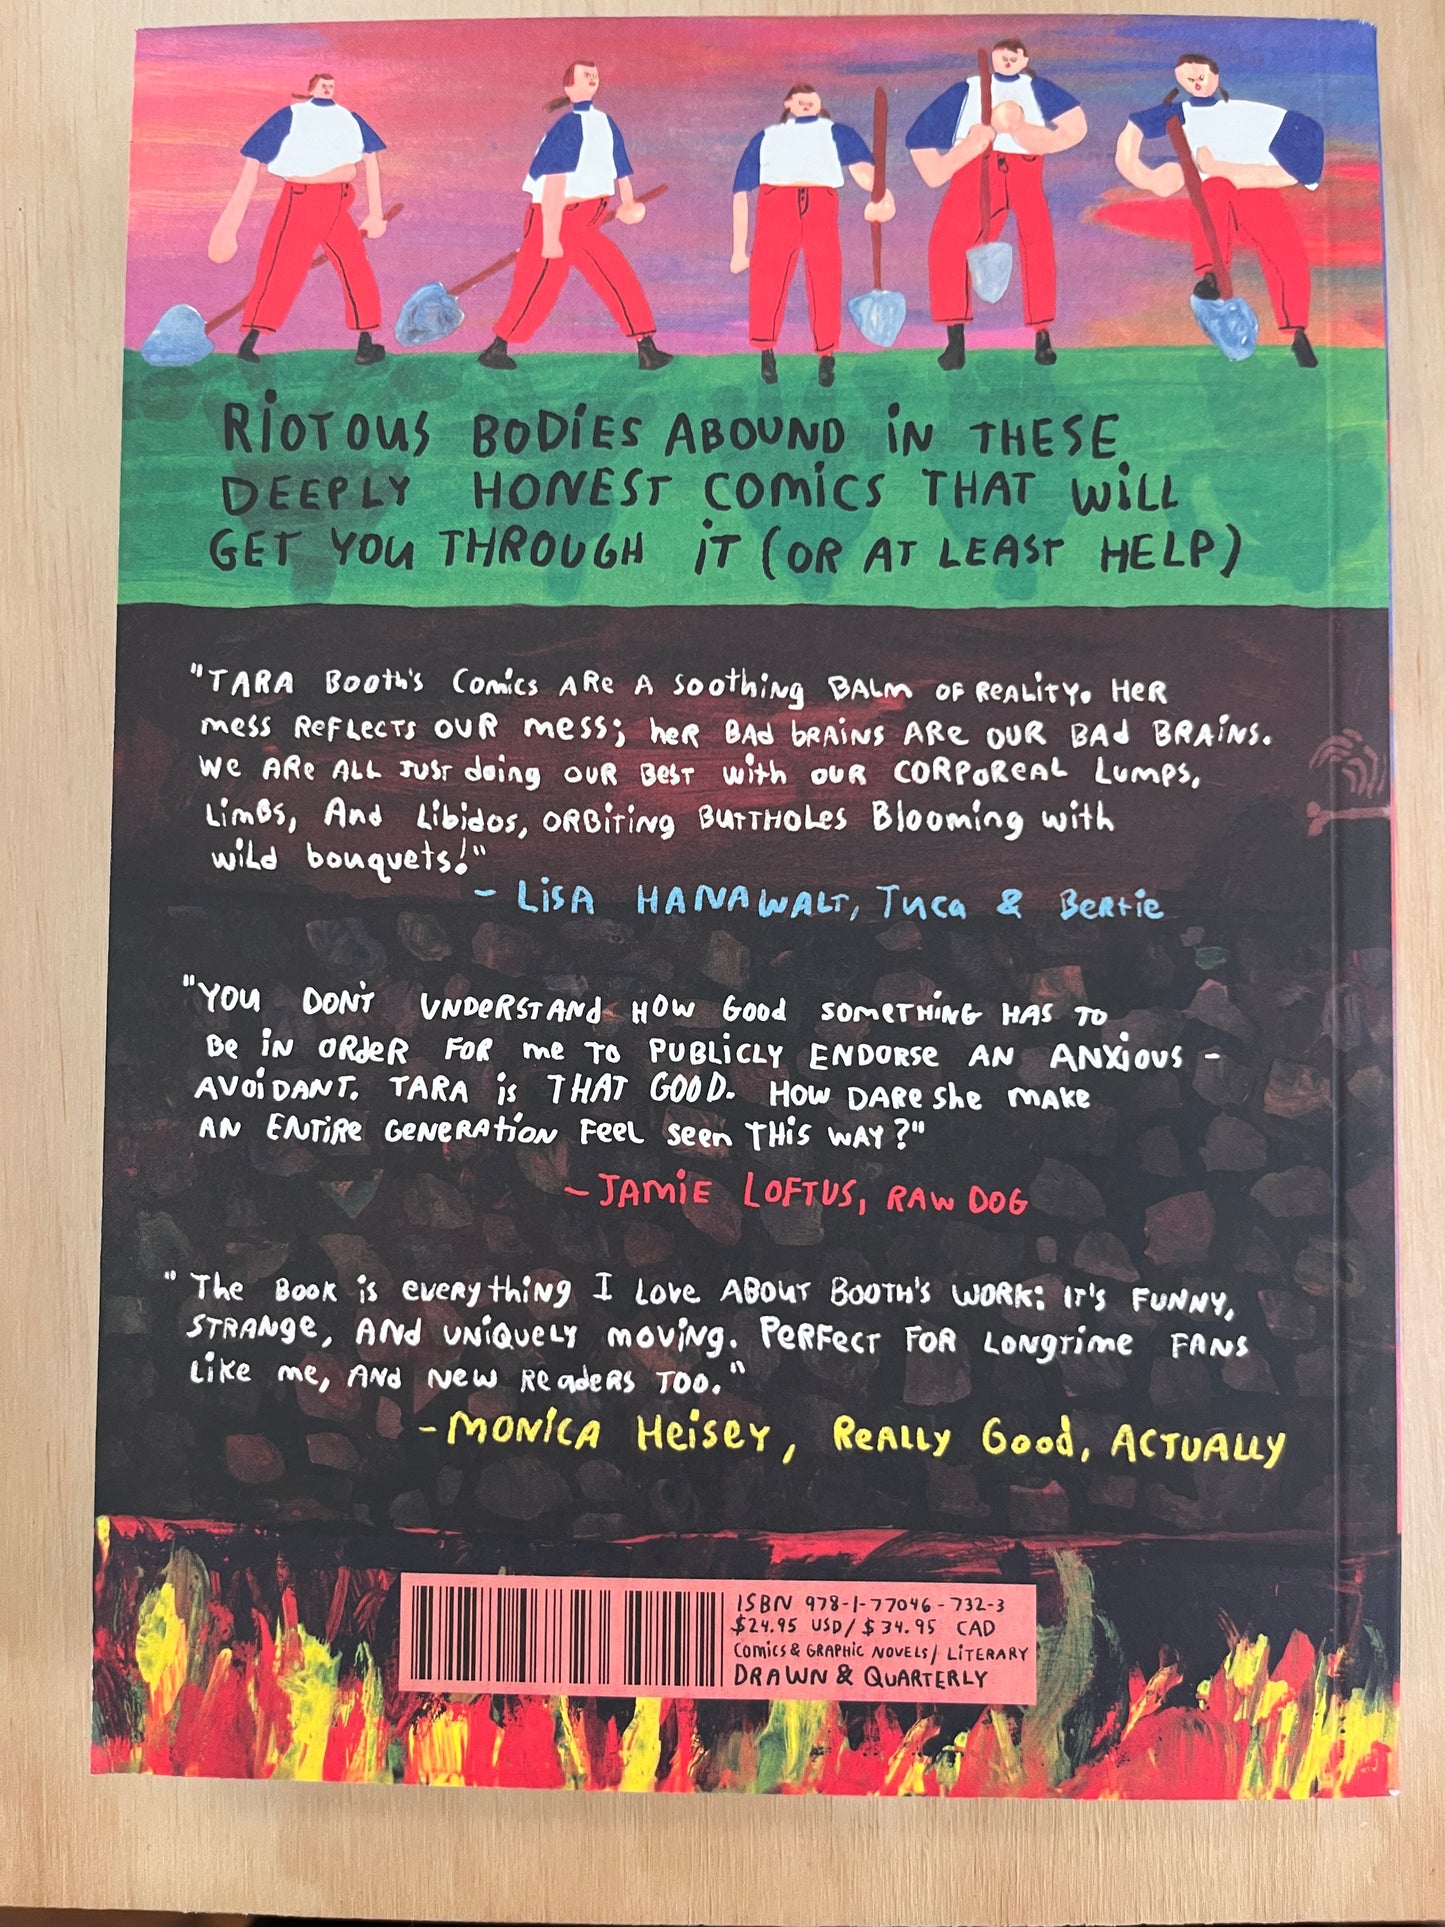 RiOTOUS BODiES ABOUND iN THESE
DEEPLY HONEST COMiCS THAT WiLL
GET YOU THROUGH iT (OR AT LEAST HELP)
"TARA BOOth's COmics ARe A Soothing BALm OF ReALiTY. HeR
mess ReFLecTs OUR mess; heR BAd bRAiNS ARe OUR BAd BRAiNS.
We ARe ALL JUST doing OUR BesT with OUR CORPOReAL Lumps,
LimBs, And Libidos, ORBiTiNg BUTTHOLes Blooming with
wiLd bouquets!"
- LiSA HANAWALT, TUca & BeRtie
"YOU DON'T UNDeRSTANd HOW Good SOMeTHiNG HAS TO
Be iN ORdeR FOR me TO PUBLiCLY ENDORSe AN ANXiOUS -
AVOiDANT. TARA is THAT GOOD. HOW DARe She MAKe
AN ENTiRe GeNeRATiON FeeL Seen THiS WAY?"
- JAMiE LOFTUS, RAW DOG
"The BOOK is eveRything I Love ABOUT BOOTH'S WORK: iT'S FUNNY,
STRANge, AND UNiQUeLY moving. PeRFecT FOR LONgTime FANS
Like me, AND New ReadeRS TOO."
- MONiCA HeiseY, ReALLY Good, ACTUALLY
ISBN 978-1-77046-732-3
$24.95 USD/$34.95 CAD
COMiCS & GRAPHiC NOVELS/ LiTERARY
DRAWN & QUARTERLY